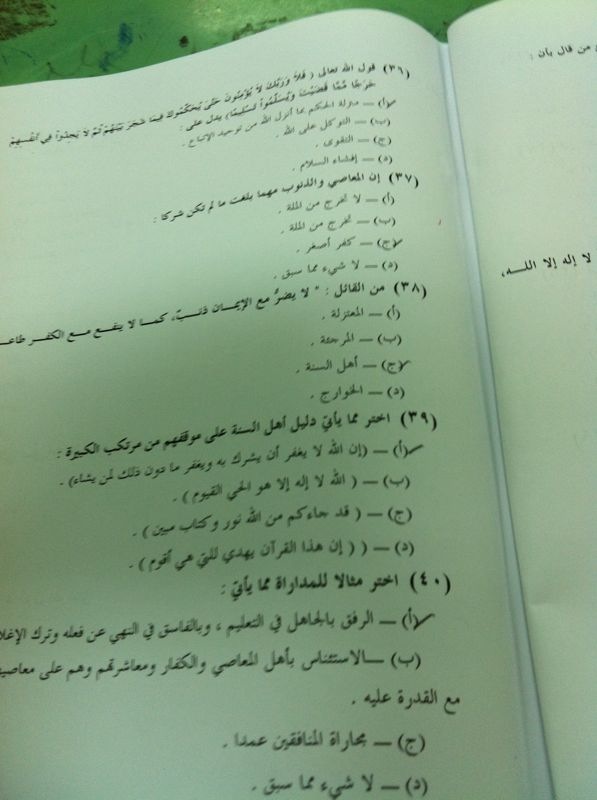 ن من قال بأن :
لا إله إلا اللـــه،
(٣٦) قول الله تعالى ( فَلاَ وَرَبِّكَ لاَ يُؤْمِنُونَ حَتَّىَ يُحَكِّمُوكَ فِيمَا شَجَرَ بَيْنَهُمْ ثُمَّ لاَ يَجِدُواْ فِي أَنفُسِهِمْ
حَرَجًا مِّمَّا قَضَيْتَ وَيُسَلِّمُواْ تَسْلِيمًا) يدل على :
(أ) — منزلة الحكم بما أنزل الله من توحيد الاتباع .
(ب) — التوكل على الله .
(ج) — التقوى .
(د) — إفشاء السلام .
(٣٧) إن المعاصي والذنوب مهما بلغت ما لم تكن شركا :
(أ) — لا تخرج من الملة .
(ب) — تخرج من الملة .
(ج) — كفر أصغر .
(د) — لا شيء مما سبق .
(٣٨) من القائل : " لا يضرُّ مع الإيمـان ذنـبٌ، كمـا لا ينفع مـع الكفـر طاعـ
(أ) — المعتزلة .
(ب) — المرجئة .
(ج) — أهل السنة .
(د) — الخوارج .
(٣٩) اختر مما يأتيّ دليل أهل السنة على موقفهم من مرتكب الكبيرة :
(أ) — (إن الله لا يغفر أن يشرك به ويغفر ما دون ذلك لمن يشاء) .
(ب) — ( الله لا إله إلا هو الحي القيوم ) .
(ج) — ( قد جاءكم من الله نور وكتاب مبين ) .
(د) — ( ( إن هذا القرآن يهدي للتي هي أقوم ) .
(٤٠) اختر مثالا للمداراة مما يأتيّ :
(أ) — الرفق بالجاهل في التعليم ، وبالفاسق في النهي عن فعله وترك الإغلا
(ب) —الاستئناس بأهل المعاصي والكفار ومعاشرتهم وهم على معاصيه
مع القدرة عليه .
(ج) — مجاراة المنافقين عمدا .
(د) — لا شيء مما سبق .